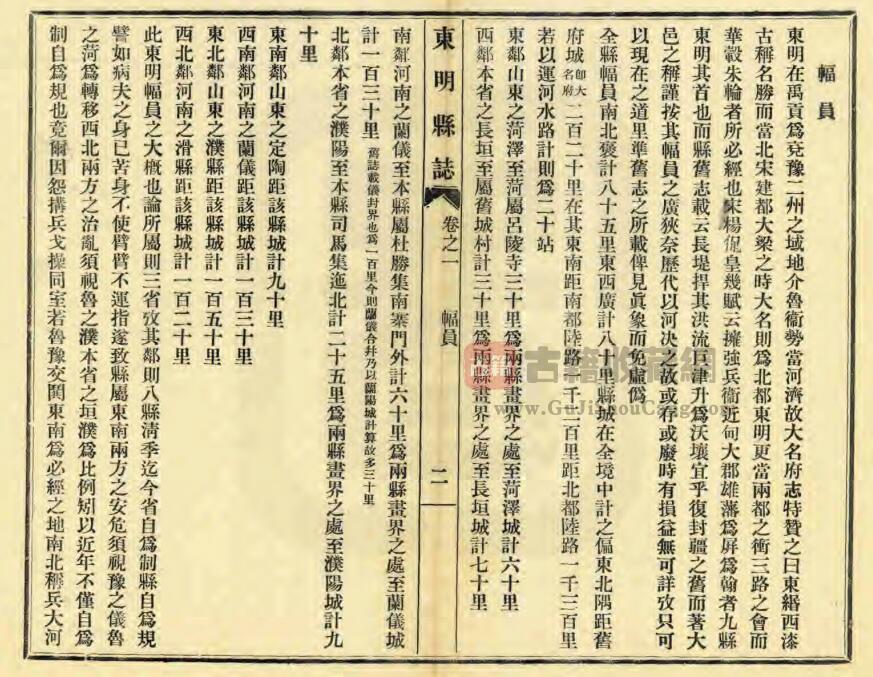 幅員
東明在禹貢爲兗豫二州之域地介魯衞勢當河濟故大名府志特贊之曰東緡西漆
古稱名勝而當北宋建都大梁之時大名則爲北都東明更當兩都之衝三路之會而
華轂朱輪者所必經也宋楊侃皇幾賦云擁強兵衞近甸大郡雄藩爲屏爲翰者九縣
東明其首也而縣舊志載云長堤捍其洪流巨津升爲沃壤宜乎復封疆之舊而著大
邑之稱謹按其幅員之廣狹奈歷代以河決之故或存或廢時有損益無可詳攷只可
以現在之道里準舊志之所載俾見眞象而免虛爲
全縣幅員南北袤計八十五里東西廣計八十里縣城在全境中計之偏東北隅距舊
府城卽大名府二百二十里在其東南距南都陸路一千二百里距北都陸路一千三百里
若以運河水路計則爲二十站
東鄰山東之菏澤至菏屬呂陵寺三十里爲兩縣畫界之處至菏澤城計六十里
西鄰本省之長垣至屬舊城村計三十里爲兩縣畫界之處至長垣城計七十里
東明縣誌
卷之一
幅員
二
南鄰河南之蘭儀至本縣屬杜勝集南寨門外計六十里爲兩縣畫界之處至蘭儀城
計一百三十里舊誌載儀封界也爲一百里今則蘭儀合幷乃以蘭陽城計算故多三十里
北鄰本省之濮陽至本縣司馬集迤北計二十五里爲兩縣畫界之處至濮陽城計九
十里
東南鄰山東之定陶距該縣城計九十里
西南鄰河南之蘭儀距該縣城計一百三十里
東北鄰山東之濮縣距該縣城計一百五十里
西北鄰河南之滑縣距該縣城計一百二十里
此東明幅員之大槪也論所屬則三省攷其鄰則八縣淸季迄今省自爲制縣自爲規
譬如病夫之身已苦身不使臂臂不運指遂致縣屬東南兩方之安危須視豫之儀魯
之菏爲轉移西北兩方之治亂須視魯之濮本省之垣濮爲比例矧以近年不僅自爲
制自爲規也竟爾因怨搆兵戈操同室若魯豫交鬨東南爲必經之地南北稱兵大河
古籍收藏網
www.GuJiShouCang.com